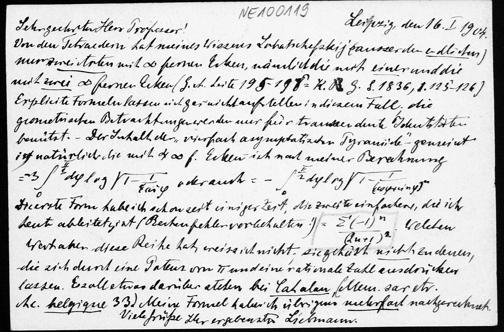 NE100119
Leipzig, den 16. I 1904.
Sehr geehrter Herr Professor!
Von den Tetraedern hat meines Wissens Lobatschefskij (ausser den endlichen)
nur zwei Arten mit ∞ fernen Ecken, nämlich die mit einer und die
mit zwei ∞ fernen Ecken
Explicite Formeln lassen sich gar nicht aufstellen in diesem Fall. die
geometrischen Betrachtungen werden nur für transcendente Identitäten
benützt. – Der Inhalt der „vierfach asymptotischen Pyramide" gemeint
ist natürlich die mit 4 ∞ f. Ecken ist nach meiner Berechnung
oder auch = –
Die erste Form habe ich schon seit einiger Zeit, die zweite einfachere, die ich
heut ableitete, ist (Rechenfehler vorbehalten!) = Σ (-1)^n / (2n+1)^2 Welchen
Wert aber diese Reihe hat, weiss ich nicht. sie gehört nicht zu denen,
die sich durch eine Potenz von π und eine rationale Zahl ausdrücken
lassen. Es soll etwas darüber stehen bei Catalan, Mém.
belgique 33) Meine Formel habe ich übrigens mehrfach nachgerechnet.
Viele Grüsse Ihr ergebenster Liebmann.